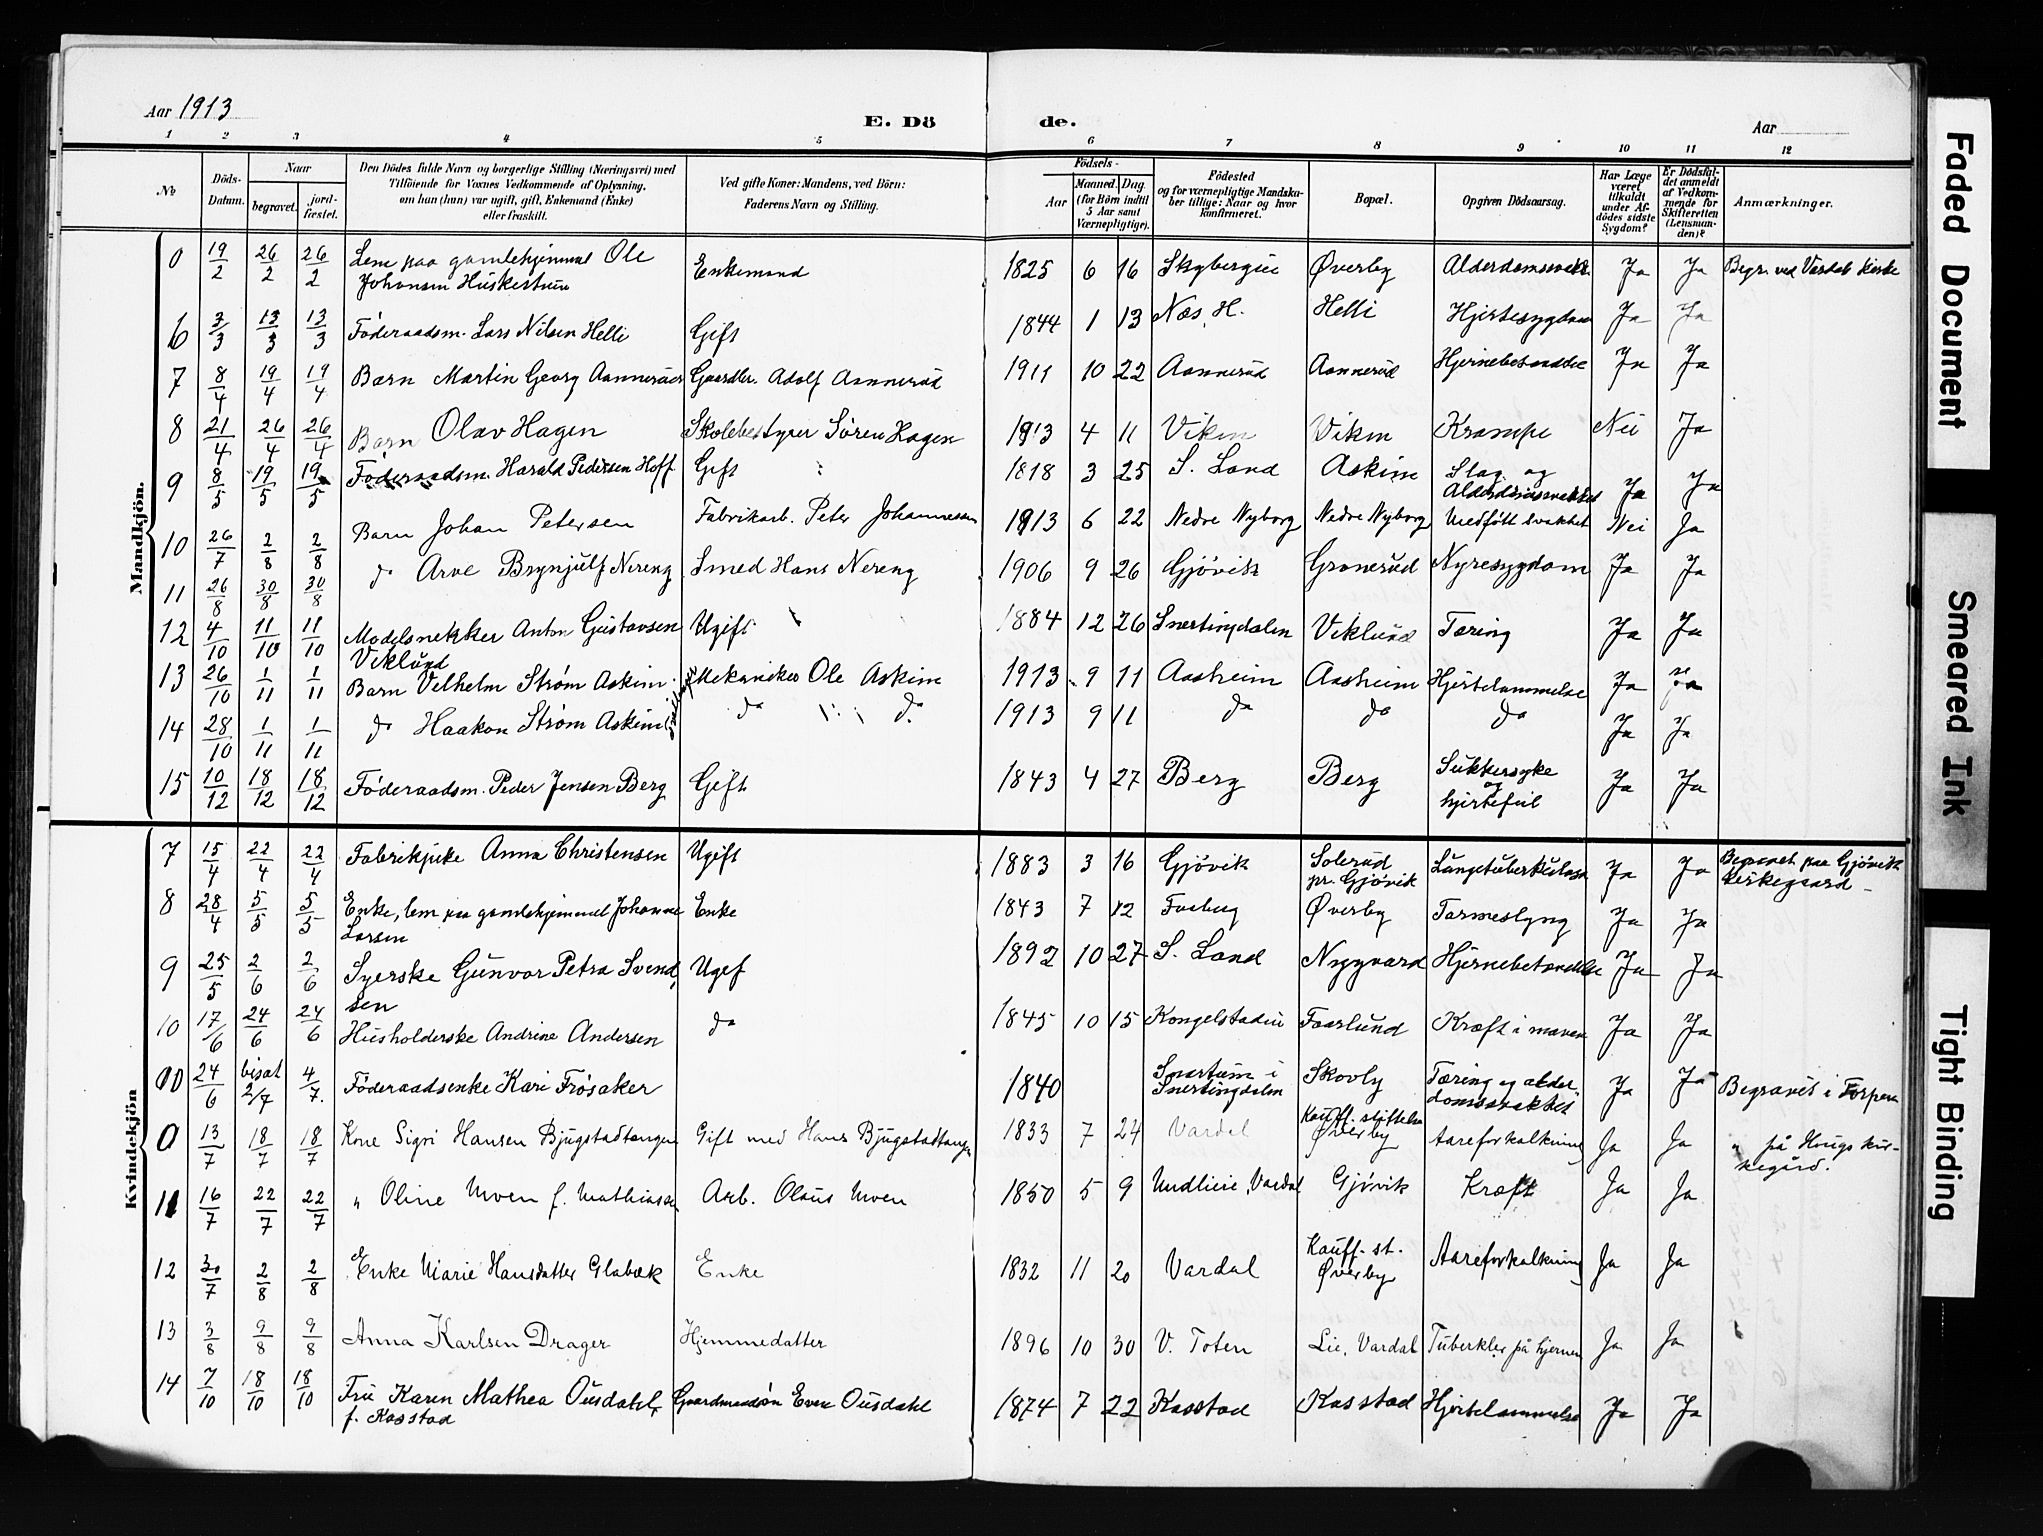 Aar 1913
E. Dö
de.
Aar
1 2 3 4 5 6 7 8 9 10 11 12
№
Döds-Datum.
Naar
begravet.
jord-fæstet.
Den Dödes fulde Navn og borgerlige Stilling (Næringsvei) med
Tilföiende for Voxnes Vedkommende af Oplysning,
om han (hun) var ugift, gift, Enkemand (Enke)
eller fraskilt.
Ved gifte Koner: Mandens, ved Börn:
Faderens Navn og Stilling.
Födsels-
Aar
Maaned.
Dag.
(for Börn indtil
5 Aar samt
Værnepligtige).
Födested
og for værnepligtige Mandska-
ber tillige: Naar og hvor
konfirmeret.
Bopæl.
Opgiven Dödsaarsag.
Har Læge
været
tilkaldt
under Af-
dödes sidste
Sygdom?
Er Dödsfal-
det anmeldt
af Vedkom-
mende for
Skifteretten
(Lensman-
den)?
Anmærkninger.
Mandkjön.
0 19/2 26/2 26/2 Lem paa gamlehjemmet Ole Johansen Enkemand 1825 6 16 Øverby Ja Ja Begr. ved Vardal kirke
6 7/3 13/3 13/3 Föderaadsm. Lars Nilsen Helli Gift 1844 1 13 Næs, H. Helli Hjertesygdom Ja Ja
7 8/4 19/4 19/4 Barn Martin Georg Aannerud Gaardbr. Adolf Aannerud 1911 10 22 Aannerud Aannerud Hjernebetændelse Ja Ja
8 21/4 26/4 26/4 Barn Olav Hagen Skolebestyrer Sören Hagen 1913 4 11 Viken Viken Krampe Nei Ja
9 8/5 19/5 19/5 Föderaadsm. Harald Pedersen Hoff Gift 1818 3 25 S. Land Askim Slag og
Alderdomssvakhet Ja Ja
10 26/7 2/8 2/8 Barn Johan Petersen Fabrikarb. Peter Johannessen 1913 6 22 Nedre Nyborg Nedre Nyborg Medfött svakhet Nei Ja
11 26/8 30/8 30/8 do Arve Brynjulf Nereng Smed Hans Nereng 1906 9 26 Gjövik Granerud Nyresygdom Ja Ja
12 4/10 11/10 11/10 Modelsnekker Anton Gustavsen
Viklund Ugift 1884 12 26 Snertingdalen Viklund Tæring Ja Ja
13 26/10 1/11 1/11 Barn Vilhelm Strøm Askim Mekaniker Ole Askim 1913 9 11 Aasheim Aasheim Hjertelammelse Ja Ja
14 28/10 1/11 1/11 do Haakon Strøm Askim do do 1913 9 11 do do do Ja Ja
15 10/12 18/12 18/12 Föderaadsm. Peder Jensen Berg Gift 1843 4 27 Berg Berg Sukkersyke
og
hjertefeil Ja Ja
Kvindekjön
7 15/4 22/4 22/4 Fabrikpike Anna Christensen Ugift 1883 3 16 Gjövik Solerud
pr. Gjövik Lungetuberkulose Ja Ja Begravet paa Gjövik
kirkegaard
8 28/4 5/5 5/5 Enke, lem paa gamlehjemmet Johanne
Larsen Enke 1843 7 12 Øverby Tarmeslyng Ja Ja
9 25/5 2/6 2/6 Syerske Gunvor Petra Svend
sen Ugif 1892 10 27 S. Land Nygaard Hjernebetændelse Ja Ja
10 17/6 24/6 24/6 Husholderske Andrine Andersen do 1845 10 15 Faarlund Kræft i maven Ja Ja
00 24/6 bisat 2/7 4/7. Föderaadsenke Kari Frösaker 1840 Snertum i
Snertingdalen Skovly Tæring og alder
domssvakhet Ja Ja Begravet i Torpen
0 13/7 18/7 18/7 Kone Sigri Hansen Bjugstadtangen Gift med Hans Bjugstadtangen 1833 7 24 Vardal Kauff. stiftelse
Øverby Aareforkalkning Ja Ja " på Hougs kir-
kegård.
11 16/7 22/7 22/7 " Oline Mven f. Mathiasen Arb. Olaus Mven 1850 5 9 Undlien, Vardal Gjövik Kræft Ja Ja
12 30/7 2/8 2/8 Enke Marie Hansdatter Glabæk Enke 1832 11 20 Vardal Kauff. st.
Øverby Aareforkalkning Ja Ja
13 3/8 9/8 9/8 Anna Karlsen Drager Hjemmedatter 1896 10 30 V. Toten Lie, Vardal Tuberkler på hjernen Ja Ja
14 7/10 18/10 18/10 Fru Karen Mathea Ousdahl,
f. Kasstad Gaardmandsön Even Ousdahl 1874 7 22 Kasstad Kasstad Hjertelammelse Ja Ja
Faded Document
Smeared Ink
Tight Binding